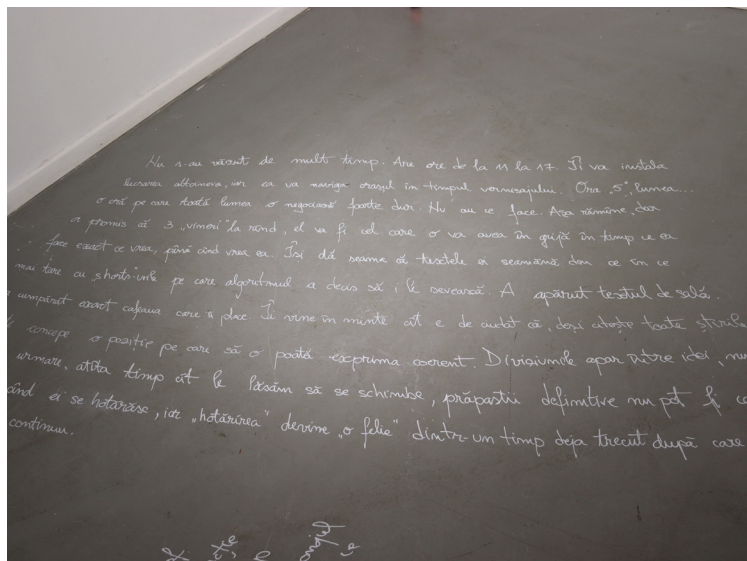 Nu s-au văzut de mult timp. Are ore de la 11 la 17. Îi va instala
lucrarea altcineva, iar ea va naviga orașul în timpul vernisajului. Ora „5”, lumea...
o oră pe care toată lumea o negociază foarte dur. Nu au ce face. Așa rămîne, dar
a promis că 3 „vineri” la rînd, el va fi cel care o va avea în grijă în timp ce ea
face exact ce vrea, până cînd vrea ea. Își dă seama că textele ei seamănă din ce în ce
mai tare cu „shorts”-urile pe care algoritmul a decis să i le servească. A apărut textul de sală.
cumpărat exact cafeaua care îi place Îi vine în minte cît e de ciudat că, deși citește toate știrile
concepe o poziție pe care să o poată exprima coerent. Diviziunile apar între idei, nu
urmare, atîta timp cît le lăsăm să se schimbe, prăpastii definitive nu pot fi
când ei se hotărăsc, iar „hotărîrea” devine „o felie” dintr-un timp deja trecut după care
continuu.